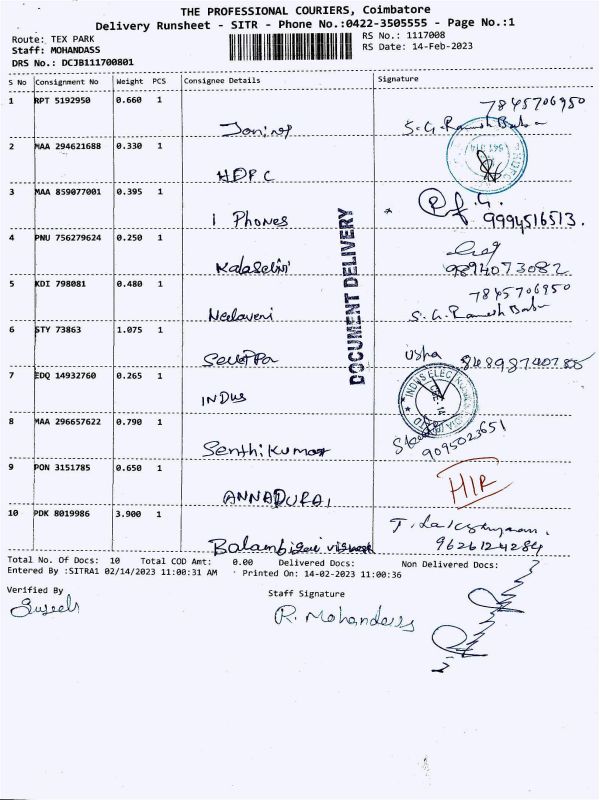 THE PROFESSIONAL COURIERS, Coimbatore
Delivery Runsheet - SITR - Phone No.:0422-3505555 - Page No.:1
Route: TEX PARK
RS No.: 1117008
Staff: MOHANDASS
RS Date: 14-Feb-2023
DRS No.: DCJB111700801
S No Consignment No Weight PCS Consignee Details Signature
1 RPT 5192950 0.660 1
7845706950
S. G. Ramesh Babu
2 MAA 294621688 0.330 1
HDFC
3 MAA 859077001 0.395 1
I Phones
9994516513.
4 PNU 756279624 0.250 1
Kalaselvi
9894073082
5 KDI 798081 0.480 1
7845706950
Neelaveni S. G. Ramesh Babu
6 STY 73863 1.075 1
Usha
7 EDQ 14932760 0.265 1
INDUS
8 MAA 296657622 0.790 1
Senthikumar
9095023651
9 PON 3151785 0.650 1
HIR
ANNADURAI
10 PDK 8019986 3.900 1
9626124284
DOCUMENT DELIVERY
Total No. Of Docs: 10 Total COD Amt: 0.00 Delivered Docs: Non Delivered Docs:
Entered By :SITRA1 02/14/2023 11:00:31 AM Printed On: 14-02-2023 11:00:36
Verified By
Staff Signature
R. Mohandass